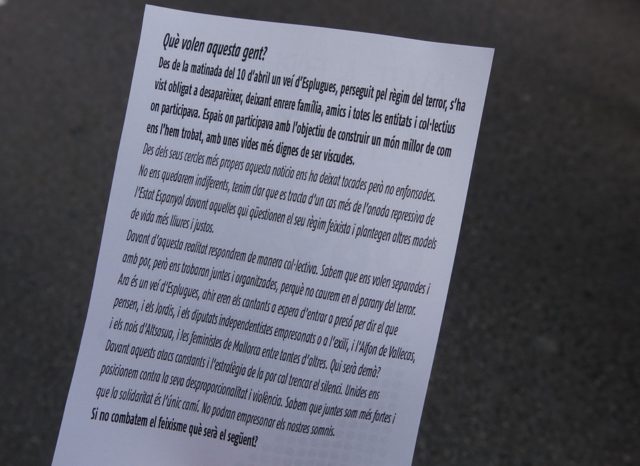 Què volen aquesta gent?
Des de la matinada del 10 d'abril un veí d'Esplugues, perseguit pel règim del terror, s'ha
vist obligat a desaparèixer, deixant enrere família, amics i totes les entitats i col·lectius
on participava. Espais on participava amb l'objectiu de construir un món millor de com
ens l'hem trobat, amb unes vides més dignes de ser viscudes.
Des dels seus cercles més propers aquesta noticia ens ha deixat tocades però no enfonsades.
No ens quedarem indiferents, tenim clar que es tracta d'un cas més de l'onada repressiva de
l'Estat Espanyol davant aquelles qui qüestionen el seu règim feixista i plantegen altres models
de vida més lliures i justos.
Davant d'aquesta realitat respondrem de manera col·lectiva. Sabem que ens volen separades i
amb por, però ens trobaran juntes i organitzades, perquè no caurem en el parany del terror.
Ara és un veí d'Esplugues, ahir eren els cantants a espera d'entrar a presó per dir el que
pensen, i els Jordis, i els diputats independentistes empresonats o a l'exili, i l'Alfon de Vallecas,
i els nois d'Altsasua, i les feministes de Mallorca entre tantes d'altres. Qui serà demà?
Davant aquests atacs constants i l'estratègia de la por cal trencar el silenci. Unides ens
posicionem contra la seva desproporcionalitat i violència. Sabem que juntes som més fortes i
que la solidaritat és l'únic camí. No podran empresonar els nostres somnis.
Si no combatem el feixisme què serà el següent?